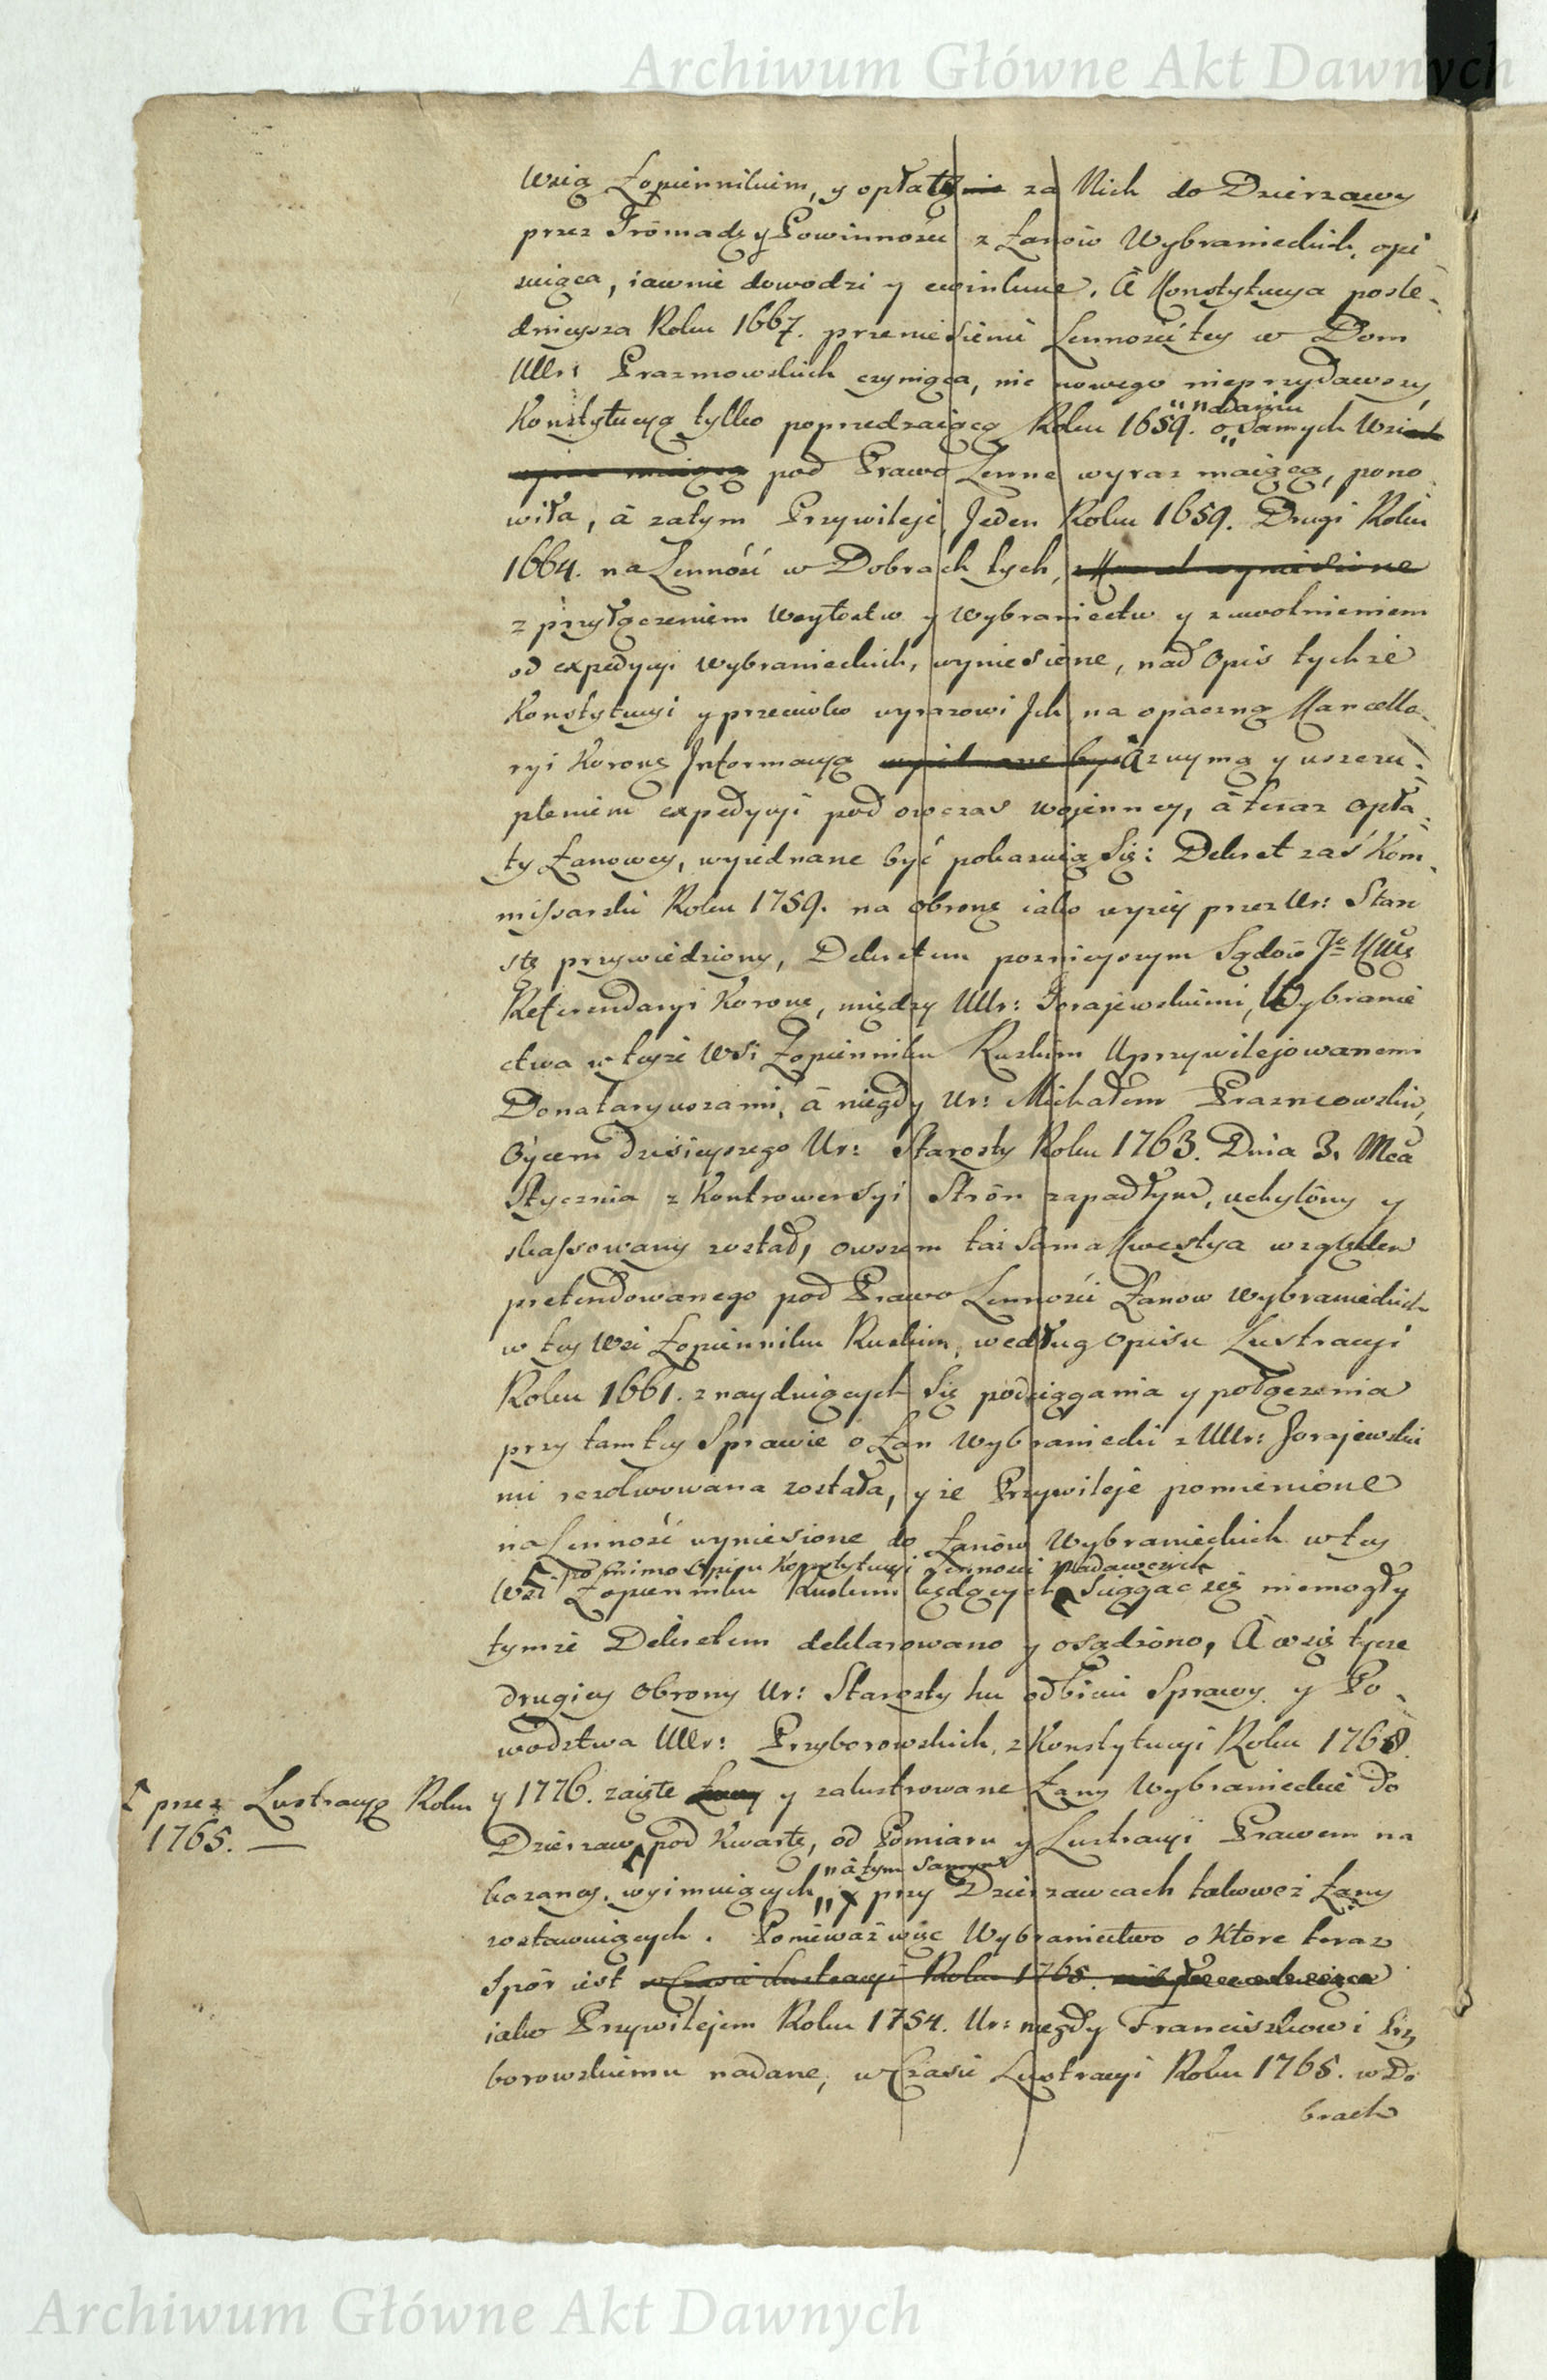 Archiwum Główne Akt Dawnych
Wsią Łopiennikiem, y opłatę za Nich do Dzierzawy
przez Gromadę y Powinności z Łanów Wybranieckich, opi
suiąca, iawnie dowodzi y ewinkuie. A Konstytucya posle-
dnieysza Roku 1667. przeniesienie Lenności tey w Dom
UUr: Prazmowskich czyniąca, nic nowego nieprzydawszy
nadaniu
Konstytucyą tylko poprzedzaiącą Roku 1659. o samych Wsi
pod Prawo Lenne wyraz maiącą, pono
wiła, á zatym Przywileje, Jeden Roku 1659. Drugi Roku
1664. na Lenność w Dobrach tych,
z przyłączeniem Woytostw y Wybraniectw y z uwolnieniem
od expedycyi wybranieckich, wyniesione, nad Opis tychże
Konstytucyi y przeciwko wyrazowi Jch na opaczną Kancella-
ryi Koronę Jnformacyą á z uymą y uszczu-
pleniem expedycyi pod owczas wojenney, á teraz opła-
ty Łanowey, wyiednane być pokazuią się: Dekret zaś Kom-
missarski Roku 1759. na obronę iako wyżey przez Ur: Staro
stę przywiedziony, Dekretem poznieyszym Sądów
Referendaryi Koronę, między UUr: Gorajewskiemi, Wybranie
ctwa w teyże Wsi Łopienniku Ruskim Uprzywilejowanemi
Donataryuszami, á niegdy Ur: Michałem Prazmowskim,
Oycem dzisieyszego Ur: Starosty Roku 1763. Dnia 3. Mca
Stycznia z Kontrowersyi Strón zapadłym, uchylony y
skassowany został, owszem taż sama Kwestya względem
pretendowanego pod Prawo Lenności Łanow Wybranieckich
w tey Wsi Łopienniku Ruskim, według opisu Lustracyi
Roku 1661. znayduiących się podciągania y połączenia
przy tamtey Sprawie o Łan Wybraniecki z UUr: Gorajewskie
mi rezolwowana została, y że Przywileje pomienione
na Lenność wyniesione do Łanów Wybranieckich w tey
pomimo Opisu Konstytucyi Lenności nadawczych
Wsi Łopienniku Ruskim będących ściągac się niemogły
tymże Dekretem deklarowano y osądzono, A co się tycze
drugiey Obrony Ur: Starosty ku odbiciu Sprawy y Po-
wodztwa UUr: Przyborowskich, z Konstytucyi Roku 1768.
y 1776. zaięte y zalustrowane Łany Wybranieckie do
przez Lustracyą Roku
1765.
Dzierzaw pod Kwartę, od Pomiaru y Lustracyi Prawem na
kazaney, wyimuiących
na tym samym
przy Dzierzawcach takoweż Łany
zostawuiących. Ponieważ więc Wybraniectwo o które teraz
Spór iest w Czasie Lustracyi Roku 1765.
iako Przywilejem Roku 1754. Ur: niegdy Franciszkowi Przy
borowskiemu nadane, w Czasie Lustracyi Roku 1765. w Do
brach
Archiwum Główne Akt Dawnych